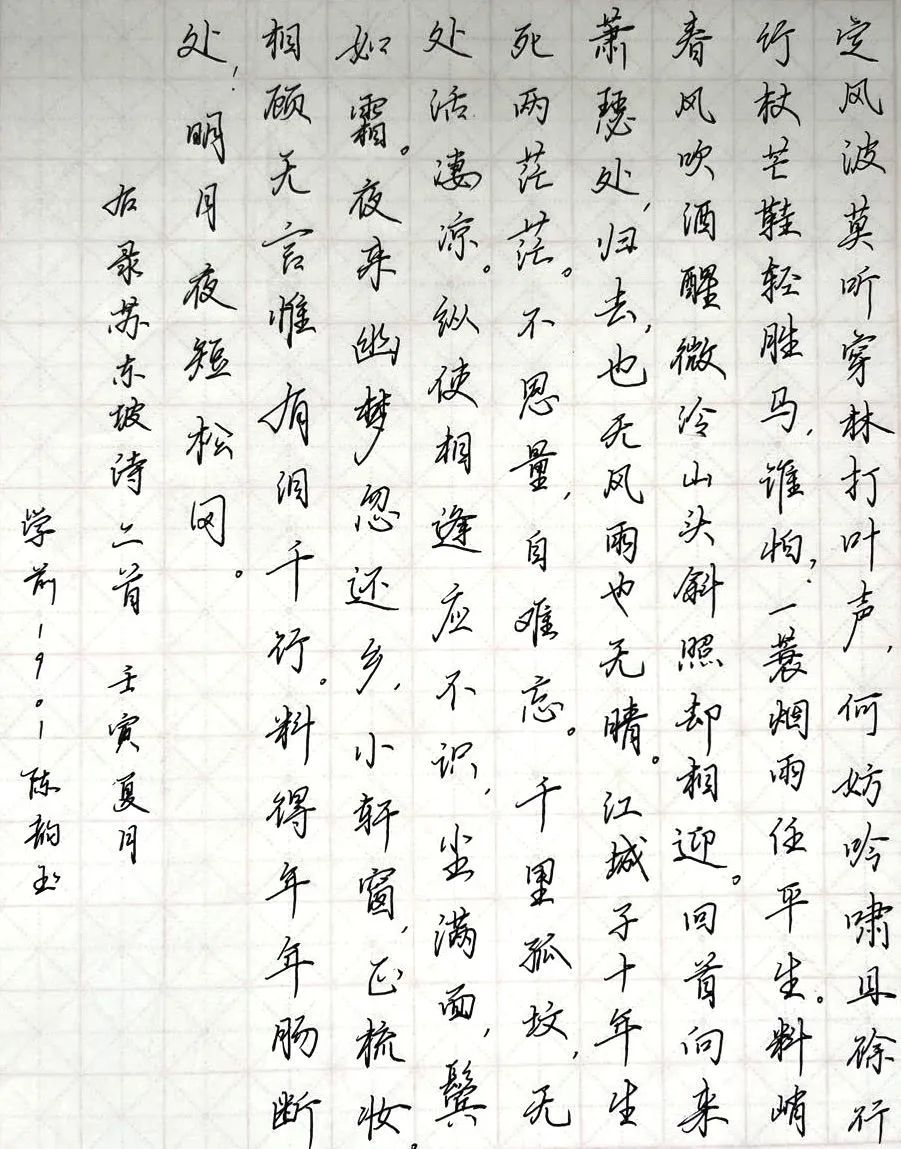 定风波莫听穿林打叶声,何妨吟啸且徐行
竹杖芒鞋轻胜马,谁怕?一蓑烟雨任平生。料峭
春风吹酒醒微冷山头斜照却相迎。回首向来
萧瑟处,归去,也无风雨也无晴。江城子十年生
死两茫茫。不思量,自难忘。千里孤坟,无
处话凄凉。纵使相逢应不识,尘满面,鬓
如霜。夜来幽梦忽还乡,小轩窗,正梳妆。
相顾无言惟有泪千行。料得年年肠断
处,明月夜短松冈。
右录苏东坡诗二首 壬寅夏月
学前1901陈韵玉